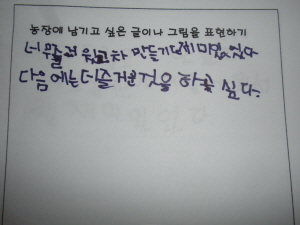 농장에 남기고 싶은 글이나 그림을 표현하기
너무 만들기 재미있었다
다음에는 더 즐거운 것을 하고 싶다.